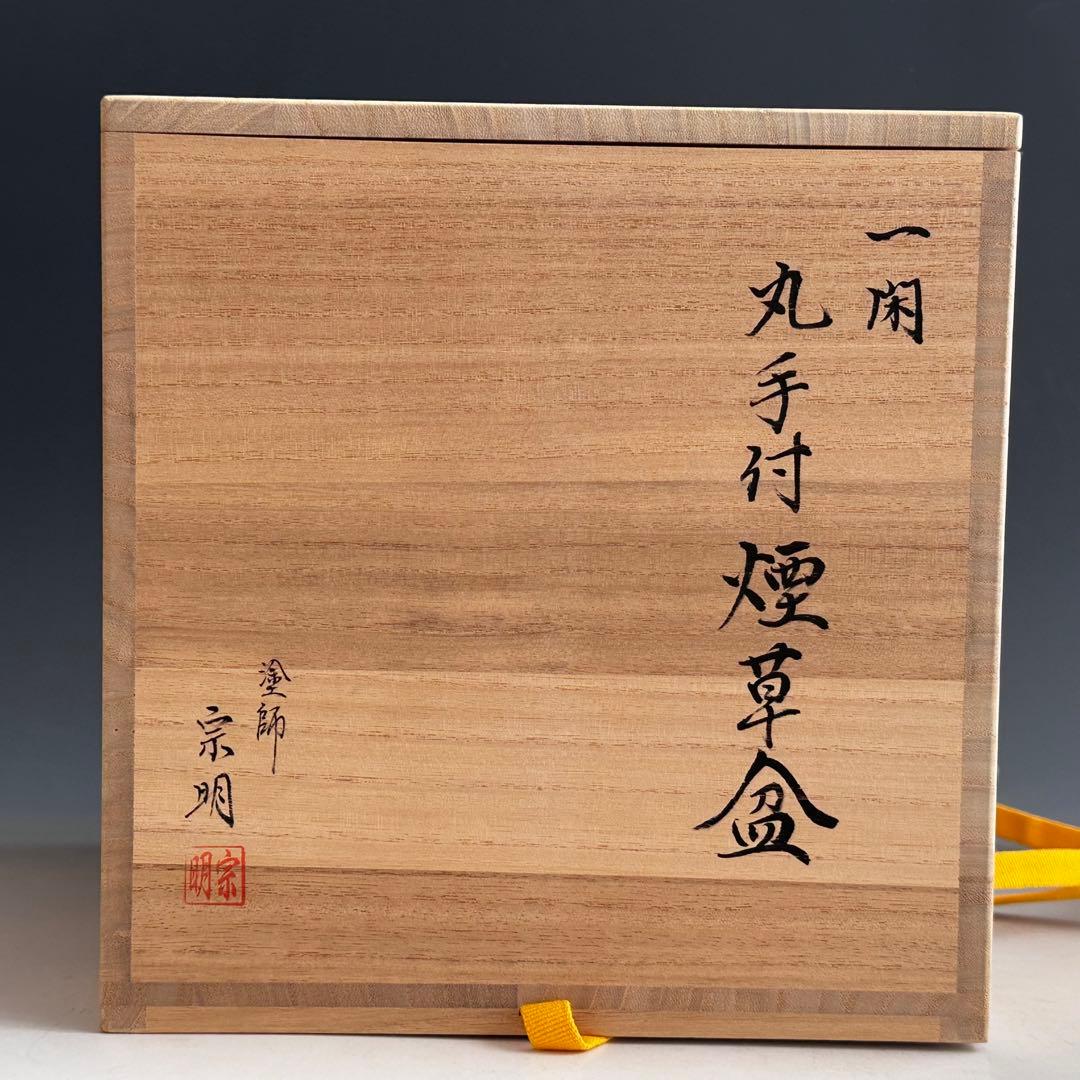 一閑
丸手付煙草盆
塗師
宗明
宗明